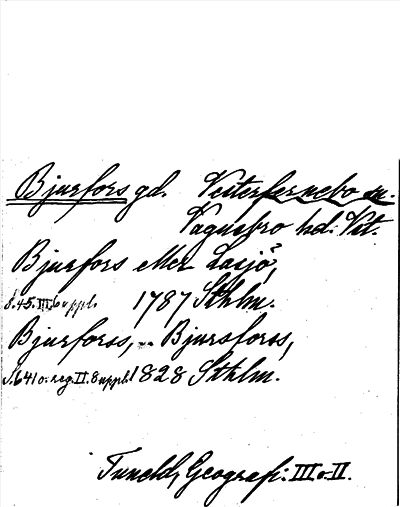 Bjurfors gd. Vesterfernebo sn.
Vagnsbro hd. Vst.
Bjurfors eller Lasjö,
s. 45. III. 6 uppl. 1787 Sthlm.
Bjurforss, .. Bjursforss,
s. 641 o. reg. II. 8 uppl. 1828 Sthlm.
Tuneld, Geografi. III o. II.